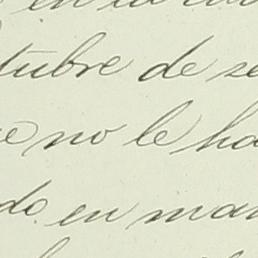 en la
tubre de se
e no le ha
do. en man